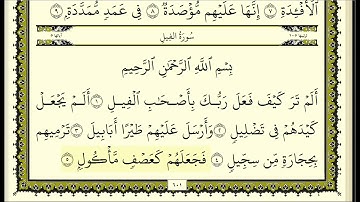 ٱلْأَفْـِٔدَةِ ٧ إِنَّهَا عَلَيْهِم مُّؤْصَدَةٌ ٨ فِى عَمَدٍ مُّمَدَّدَةٍۭ ٩
سُورَةُ الفِيلِ
بِسْمِ ٱللَّهِ ٱلرَّحْمَٰنِ ٱلرَّحِيمِ
أَلَمْ تَرَ كَيْفَ فَعَلَ رَبُّكَ بِأَصْحَٰبِ ٱلْفِيلِ ١ أَلَمْ يَجْعَلْ
كَيْدَهُمْ فِى تَضْلِيلٍ ٢ وَأَرْسَلَ عَلَيْهِمْ طَيْرًا أَبَابِيلَ ٣ تَرْمِيهِم
بِحِجَارَةٍ مِّن سِجِّيلٍ ٤ فَجَعَلَهُمْ كَعَصْفٍ مَّأْكُولٍۭ ٥
٦٠١